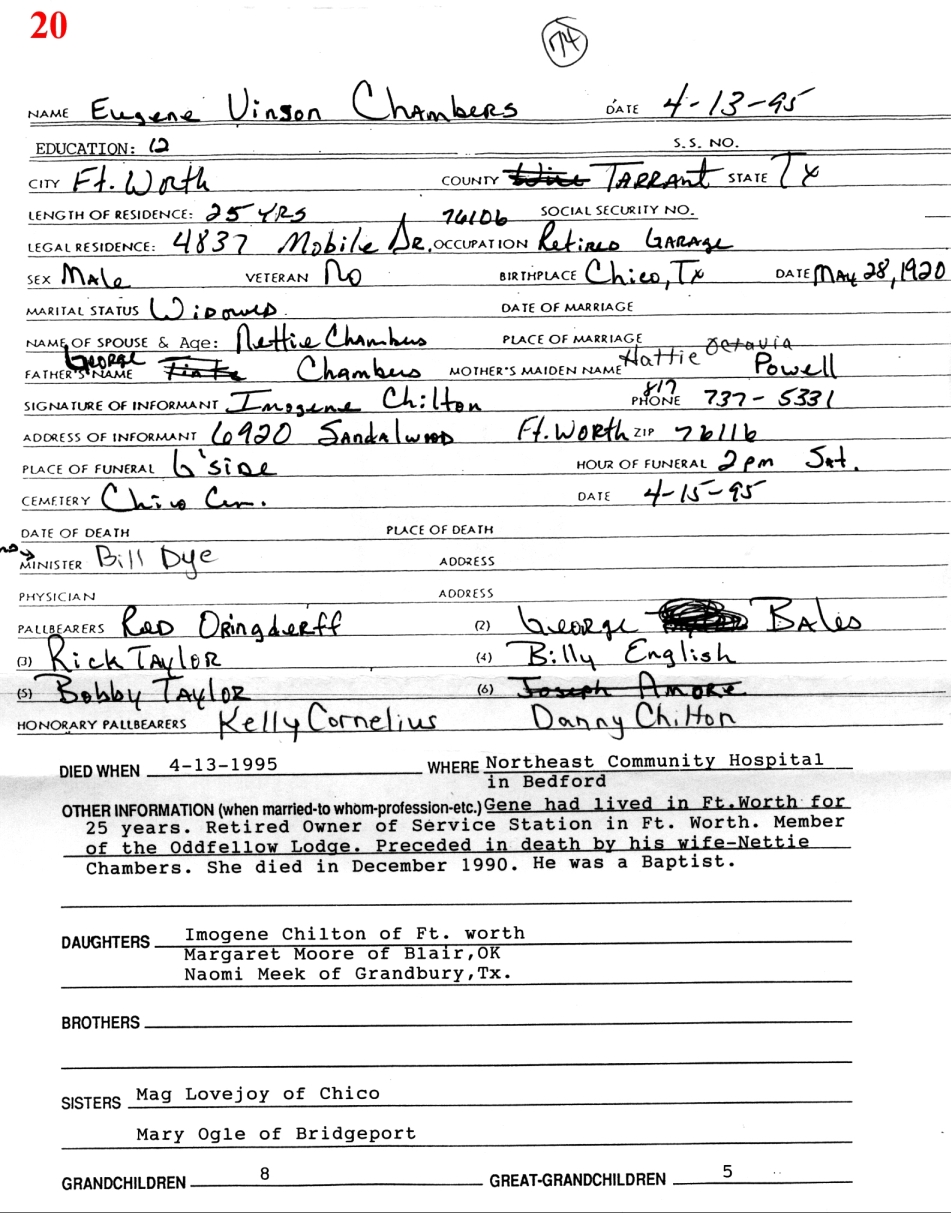 20
74
NAME Eugene Vinson Chambers DATE 4-13-95
EDUCATION: 12 S.S. NO.
CITY Ft. Worth COUNTY Wise TARRANT STATE Tx
LENGTH OF RESIDENCE: 25 YRS 76106 SOCIAL SECURITY NO.
LEGAL RESIDENCE: 4837 Mobile Dr. OCCUPATION Retired GARAGE
SEX Male VETERAN No BIRTHPLACE Chico, Tx DATE May 28, 1920
MARITAL STATUS Widowed DATE OF MARRIAGE
NAME OF SPOUSE & Age: Nettie Chambers PLACE OF MARRIAGE
FATHER'S NAME George Chambers MOTHER'S MAIDEN NAME Hattie Octavia Powell
SIGNATURE OF INFORMANT Imogene Chilton PHONE 817 737-5331
ADDRESS OF INFORMANT 6920 Sandalwood Ft. Worth ZIP 76116
PLACE OF FUNERAL G'side HOUR OF FUNERAL 2 pm Sat.
CEMETERY Chico Cem. DATE 4-15-95
DATE OF DEATH PLACE OF DEATH
no → MINISTER Bill Dye ADDRESS
PHYSICIAN ADDRESS
PALLBEARERS Rod Oringderff (2) George Bales
(3) Rick TAYLOR (4) Billy English
(5) Bobby TAYLOR (6) Joseph Amore
HONORARY PALLBEARERS Kelly Cornelius Danny Chilton
DIED WHEN 4-13-1995 WHERE Northeast Community Hospital
in Bedford
OTHER INFORMATION (when married-to whom-profession-etc.) Gene had lived in Ft.Worth for
25 years. Retired Owner of Service Station in Ft. Worth. Member
of the Oddfellow Lodge. Preceded in death by his wife-Nettie
Chambers. She died in December 1990. He was a Baptist.
DAUGHTERS Imogene Chilton of Ft. worth
Margaret Moore of Blair,OK
Naomi Meek of Grandbury,Tx.
BROTHERS
SISTERS Mag Lovejoy of Chico
Mary Ogle of Bridgeport
GRANDCHILDREN 8 GREAT-GRANDCHILDREN 5